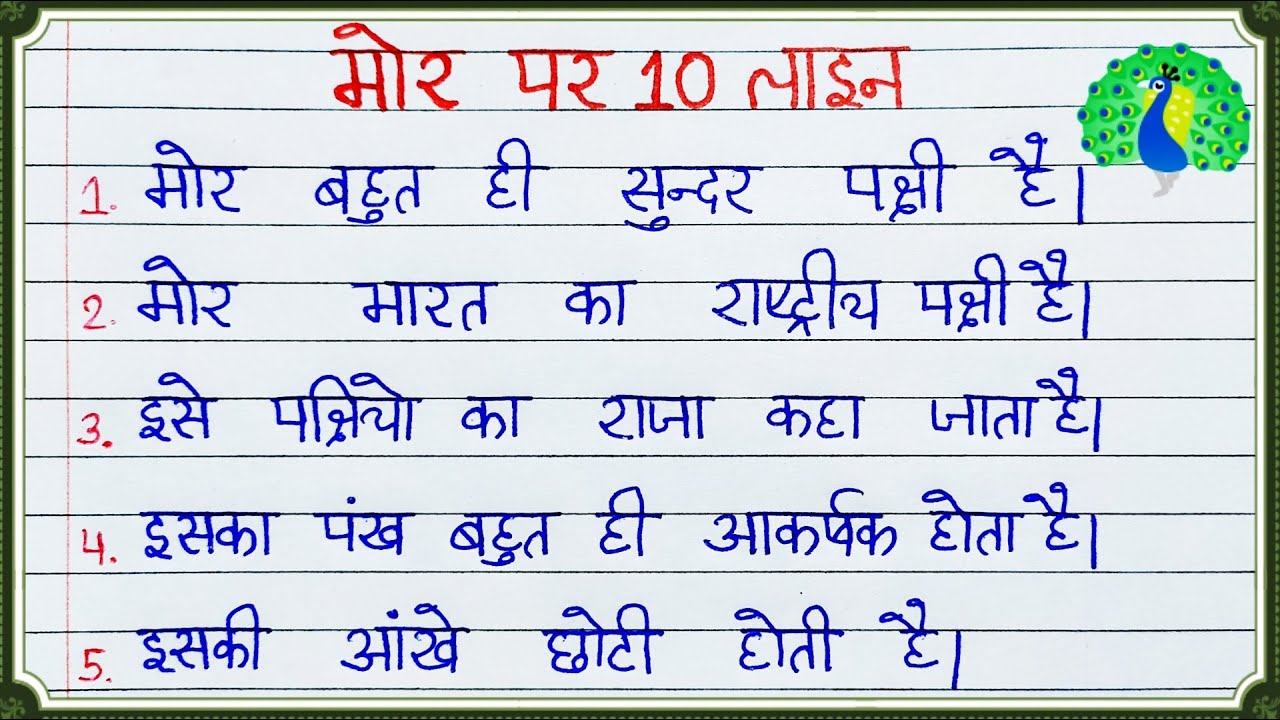 मोर पर 10 लाइन
1. मोर बहुत ही सुन्दर पक्षी है।
2. मोर भारत का राष्ट्रीय पक्षी है।
3. इसे पक्षियो का राजा कहा जाता है।
4. इसका पंख बहुत ही आकर्षक होता है।
5. इसकी आंखे छोटी होती है।